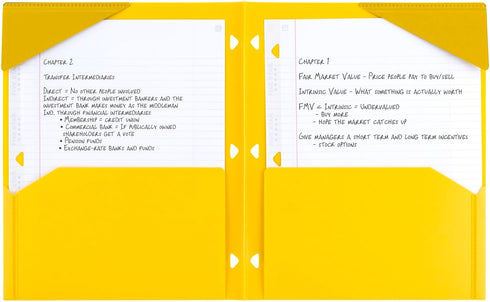 Chapter 2
Transfer Intermediaries
Direct = No other people involved
Indirect = through investment bankers and the
investment bank makes money as the moddleman
Ind. through financial intermediaries
• Membership = credit union
• Commercial bank = If publically owned
shareholders get a vote
• Pension funds
• Exchange-rate banks and funds
Chapter 1
Fair Market Value - Price people pay to buy/sell
Intrinsic Value - What something is actually worth
FMV < Intrinsic = Undervalued
- buy more
- hope the market catches up
Give managers a short term and long term incentives
- stock options